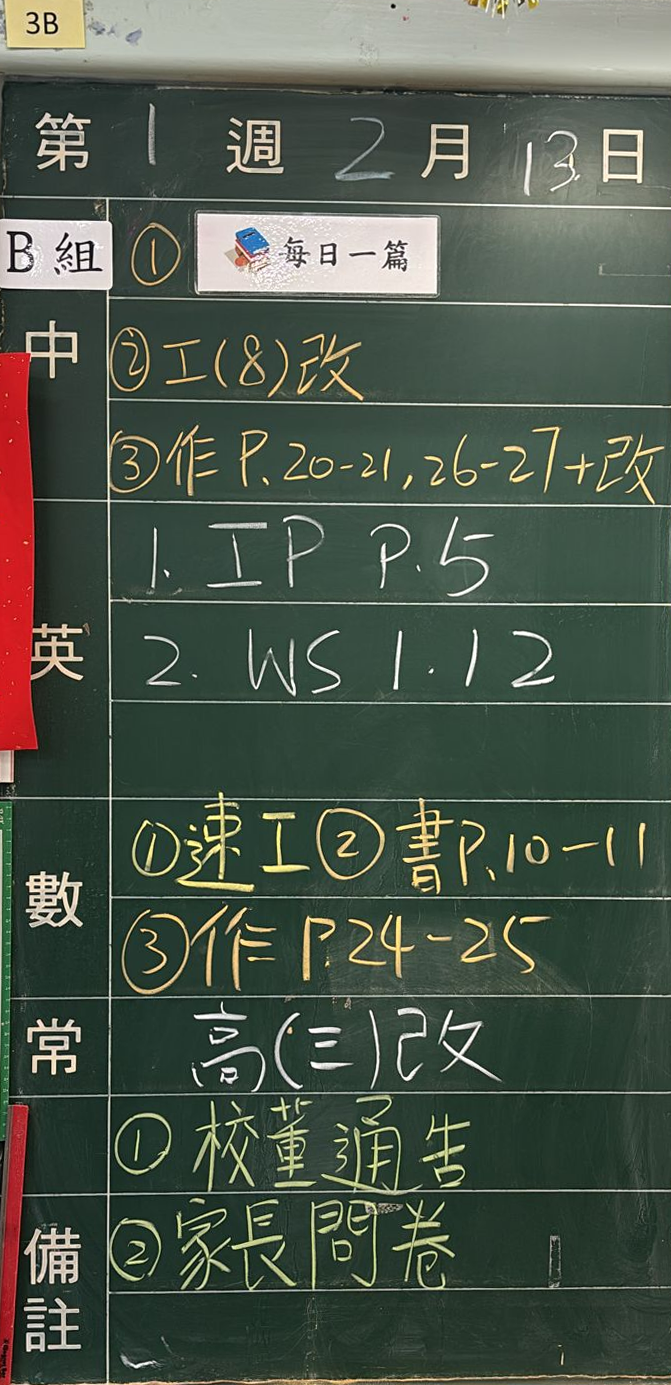 3B
第 1 週 2 月 13 日
B組 ① 每日一篇
中 ② 工(8)改
③ 作 P. 20-21, 26-27+改
1. IP P.5
英 2. WS 1.12
數 ① 速工 ② 書P.10-11
③ 作 P.24-25
常 高(三)改
備註 ① 校董通告
② 家長問卷